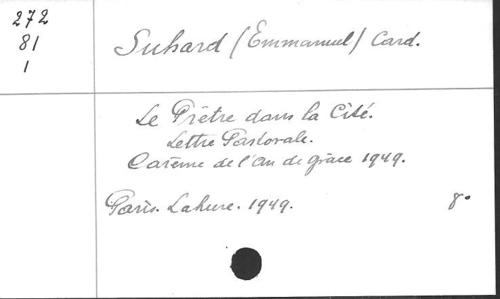 272
81
1
Suhard (Emmanuel) Card.
Le Prêtre dans la Cité.
Lettre Pastorale.
Carême de l'An de grâce 1949.
Paris. Lahure. 1949. 8°